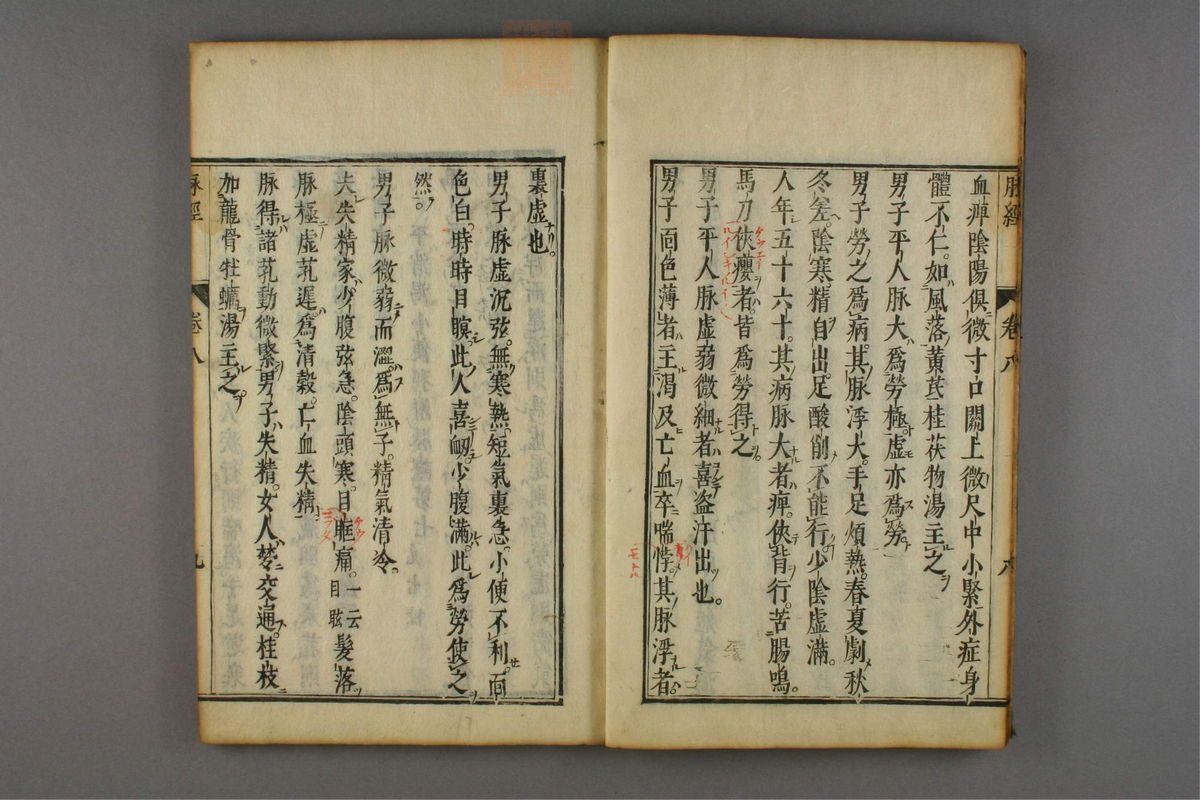 脉經
卷八
血痺陰陽俱微寸口關上微尺中小緊外症身
體不仁如風落黃芪桂茯物湯主之
男子平人脉大爲勞極虛亦爲勞
男子勞之爲病其脉浮大手足煩熱春夏劇秋
冬差陰寒精自出足酸削不能行少陰虛滿
人年五十六十其病脉大者痺俠背行苦腸鳴
馬刀俠癭者皆爲勞得之
男子平人脉虛弱微細者喜盗汗出也
男子靣色薄者主渴及亡血卒喘悸其脉浮者
裏虛也
男子脉虛沉弦無寒熱短氣裏急小便不利靣
色白時時目瞑此人喜衂少腹滿此爲勞使之
然
男子脉微弱而澀爲無子精氣清冷
夫失精家少腹弦急陰頭寒目眶痛一云目眩髮落
脉極虛芤遲爲清穀亡血失精
脉得諸芤動微緊男子失精女人夢交通桂枝
加龍骨牡蠣湯主之
脉經
卷八
九